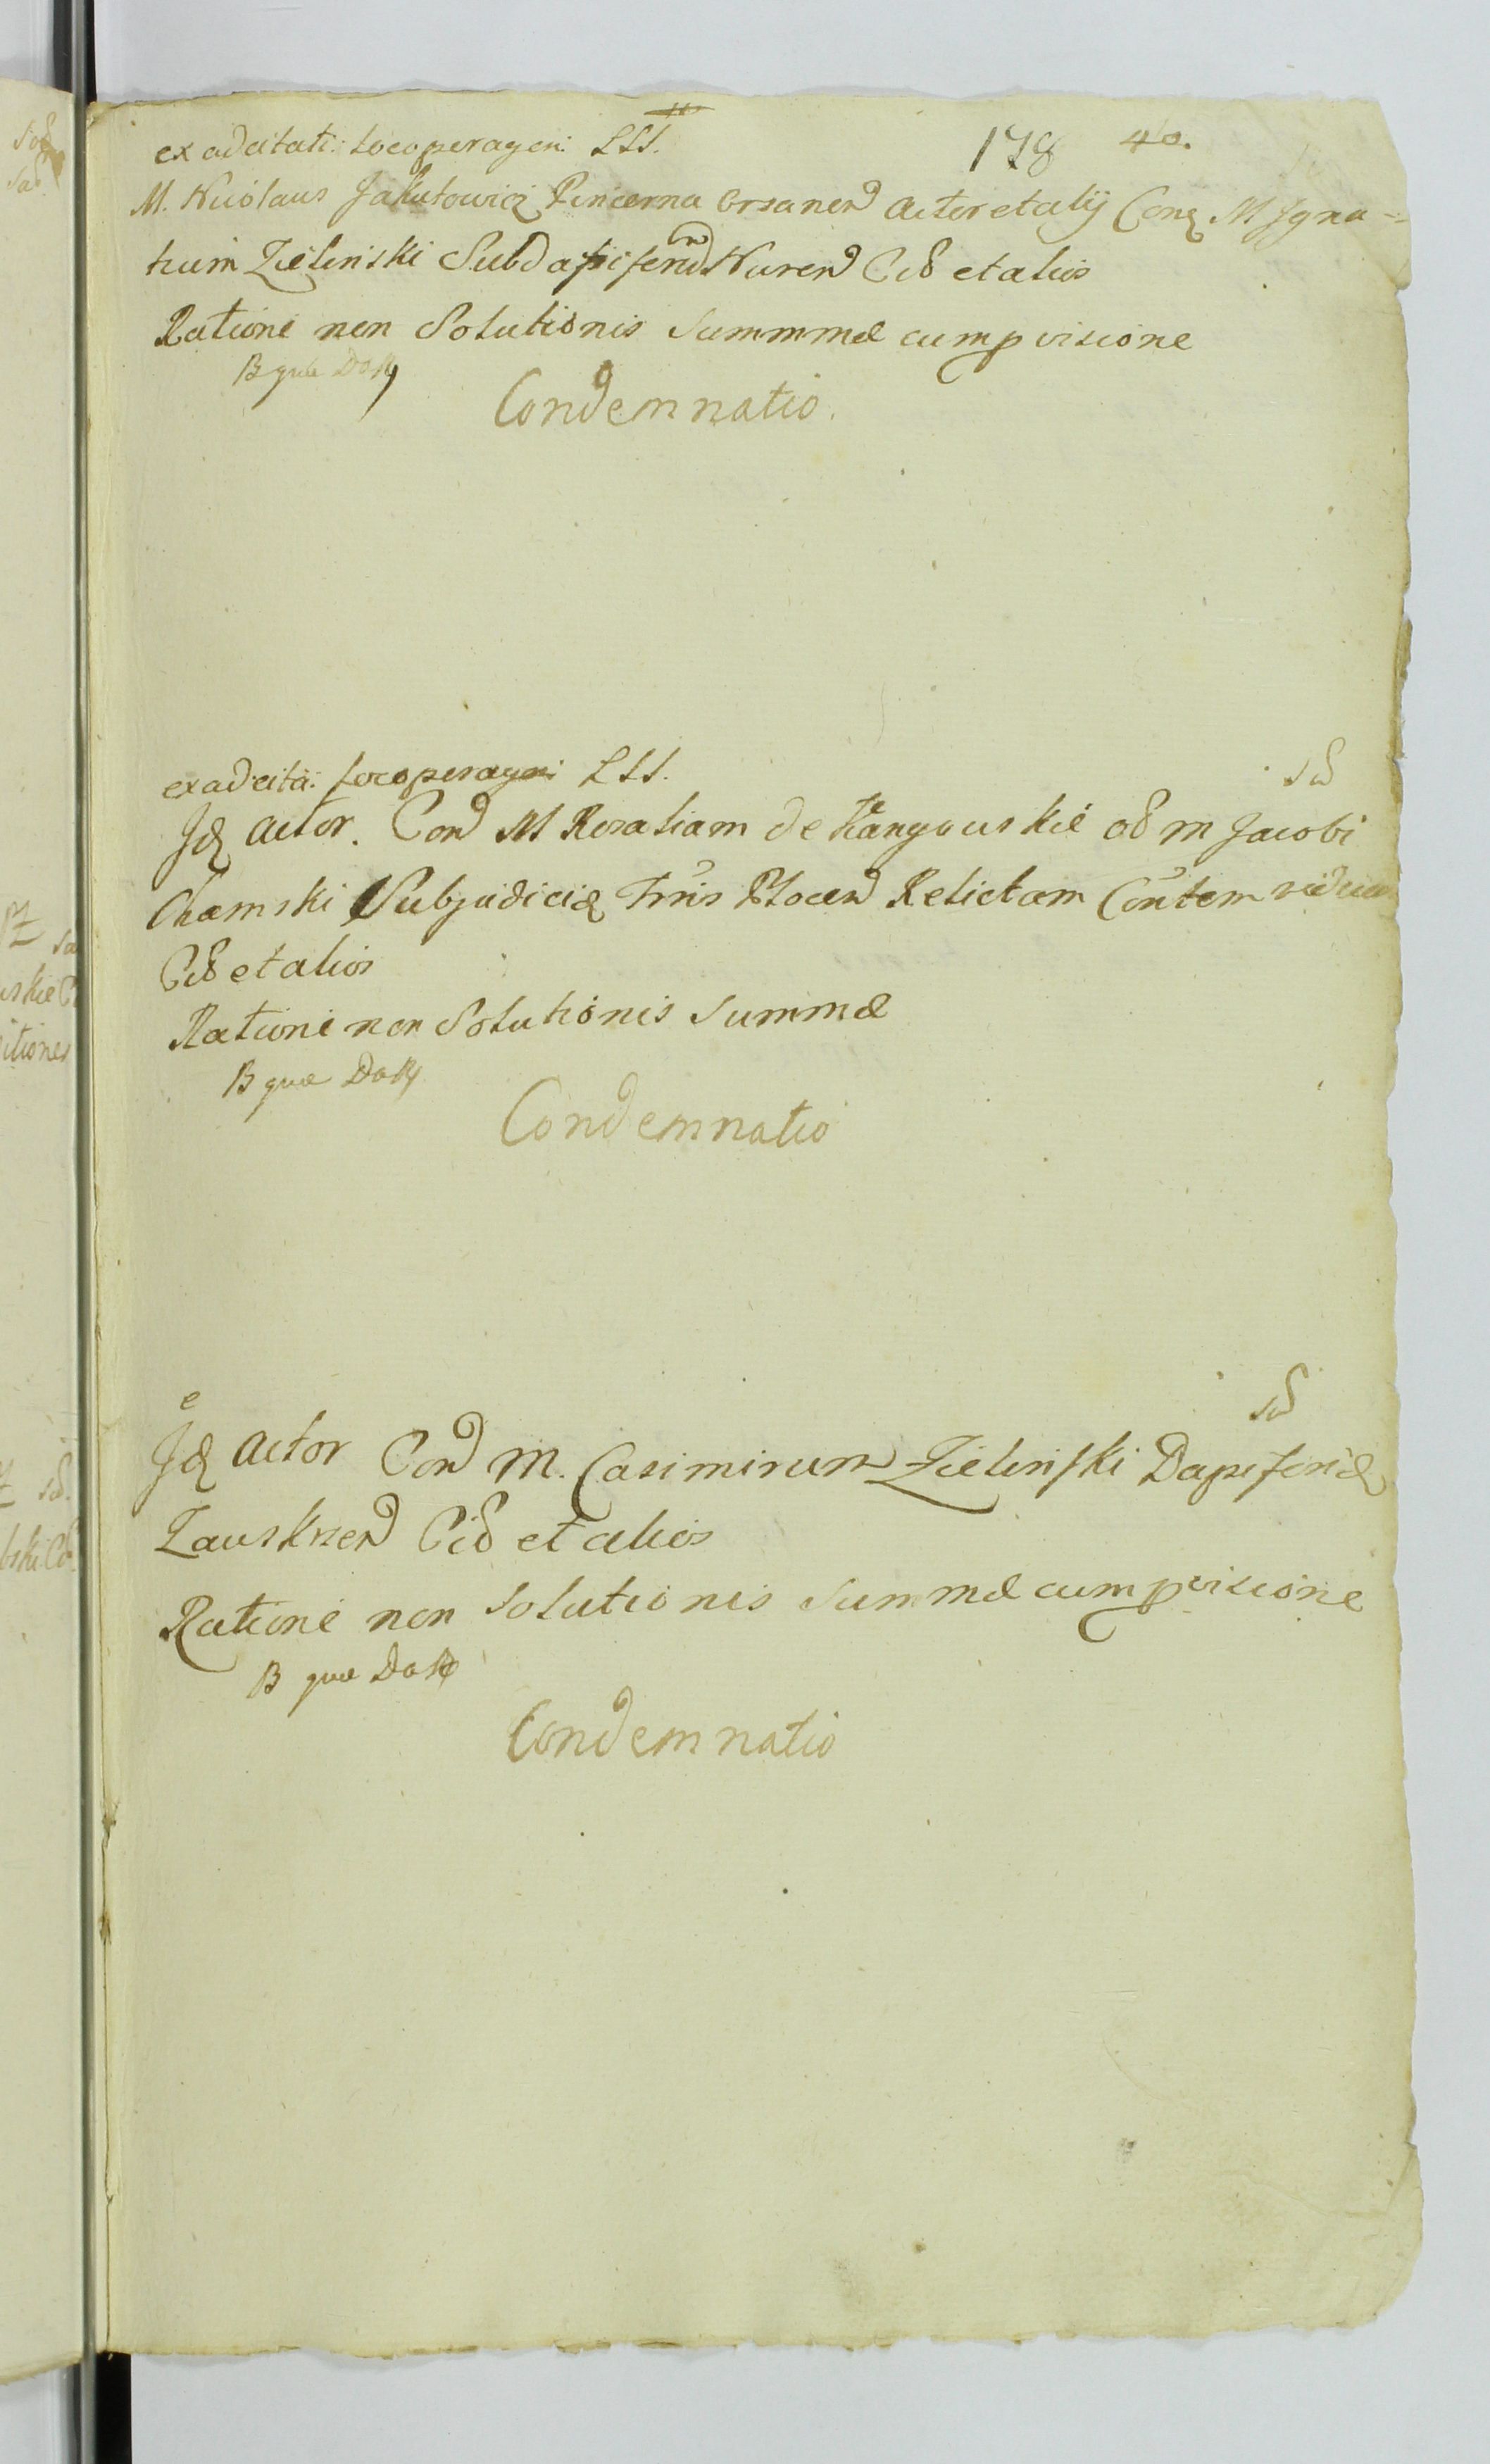 178 40.
ex adcitati: loco peragen: LSS.
M. Nicolaus Jakutowicz Pincerna Orsanen Actor et alij Con M Igna=
tium Zielinski Subdapiferum Nuren Cit et alios
Ratione non Solutionis Summmæ cum pvisione
B quæ
Condemnatio.
ex adcita: loco peragen: LSS.
sd
Id Actor. Con M Rosaliam de ob m Jacobi
Chamski Subjudicis Trris Plocen Relictam Contem viduam
Cit et alios
Ratione non Solutionis Summæ
B quæ
Condemnatio
sd
Id Actor Con M. Casimirum Zielinski Dapiferid
Zauskrzen Cit et alios
Ratione non Solutionis Summæ cum pvisione
B quæ
Condemnatio